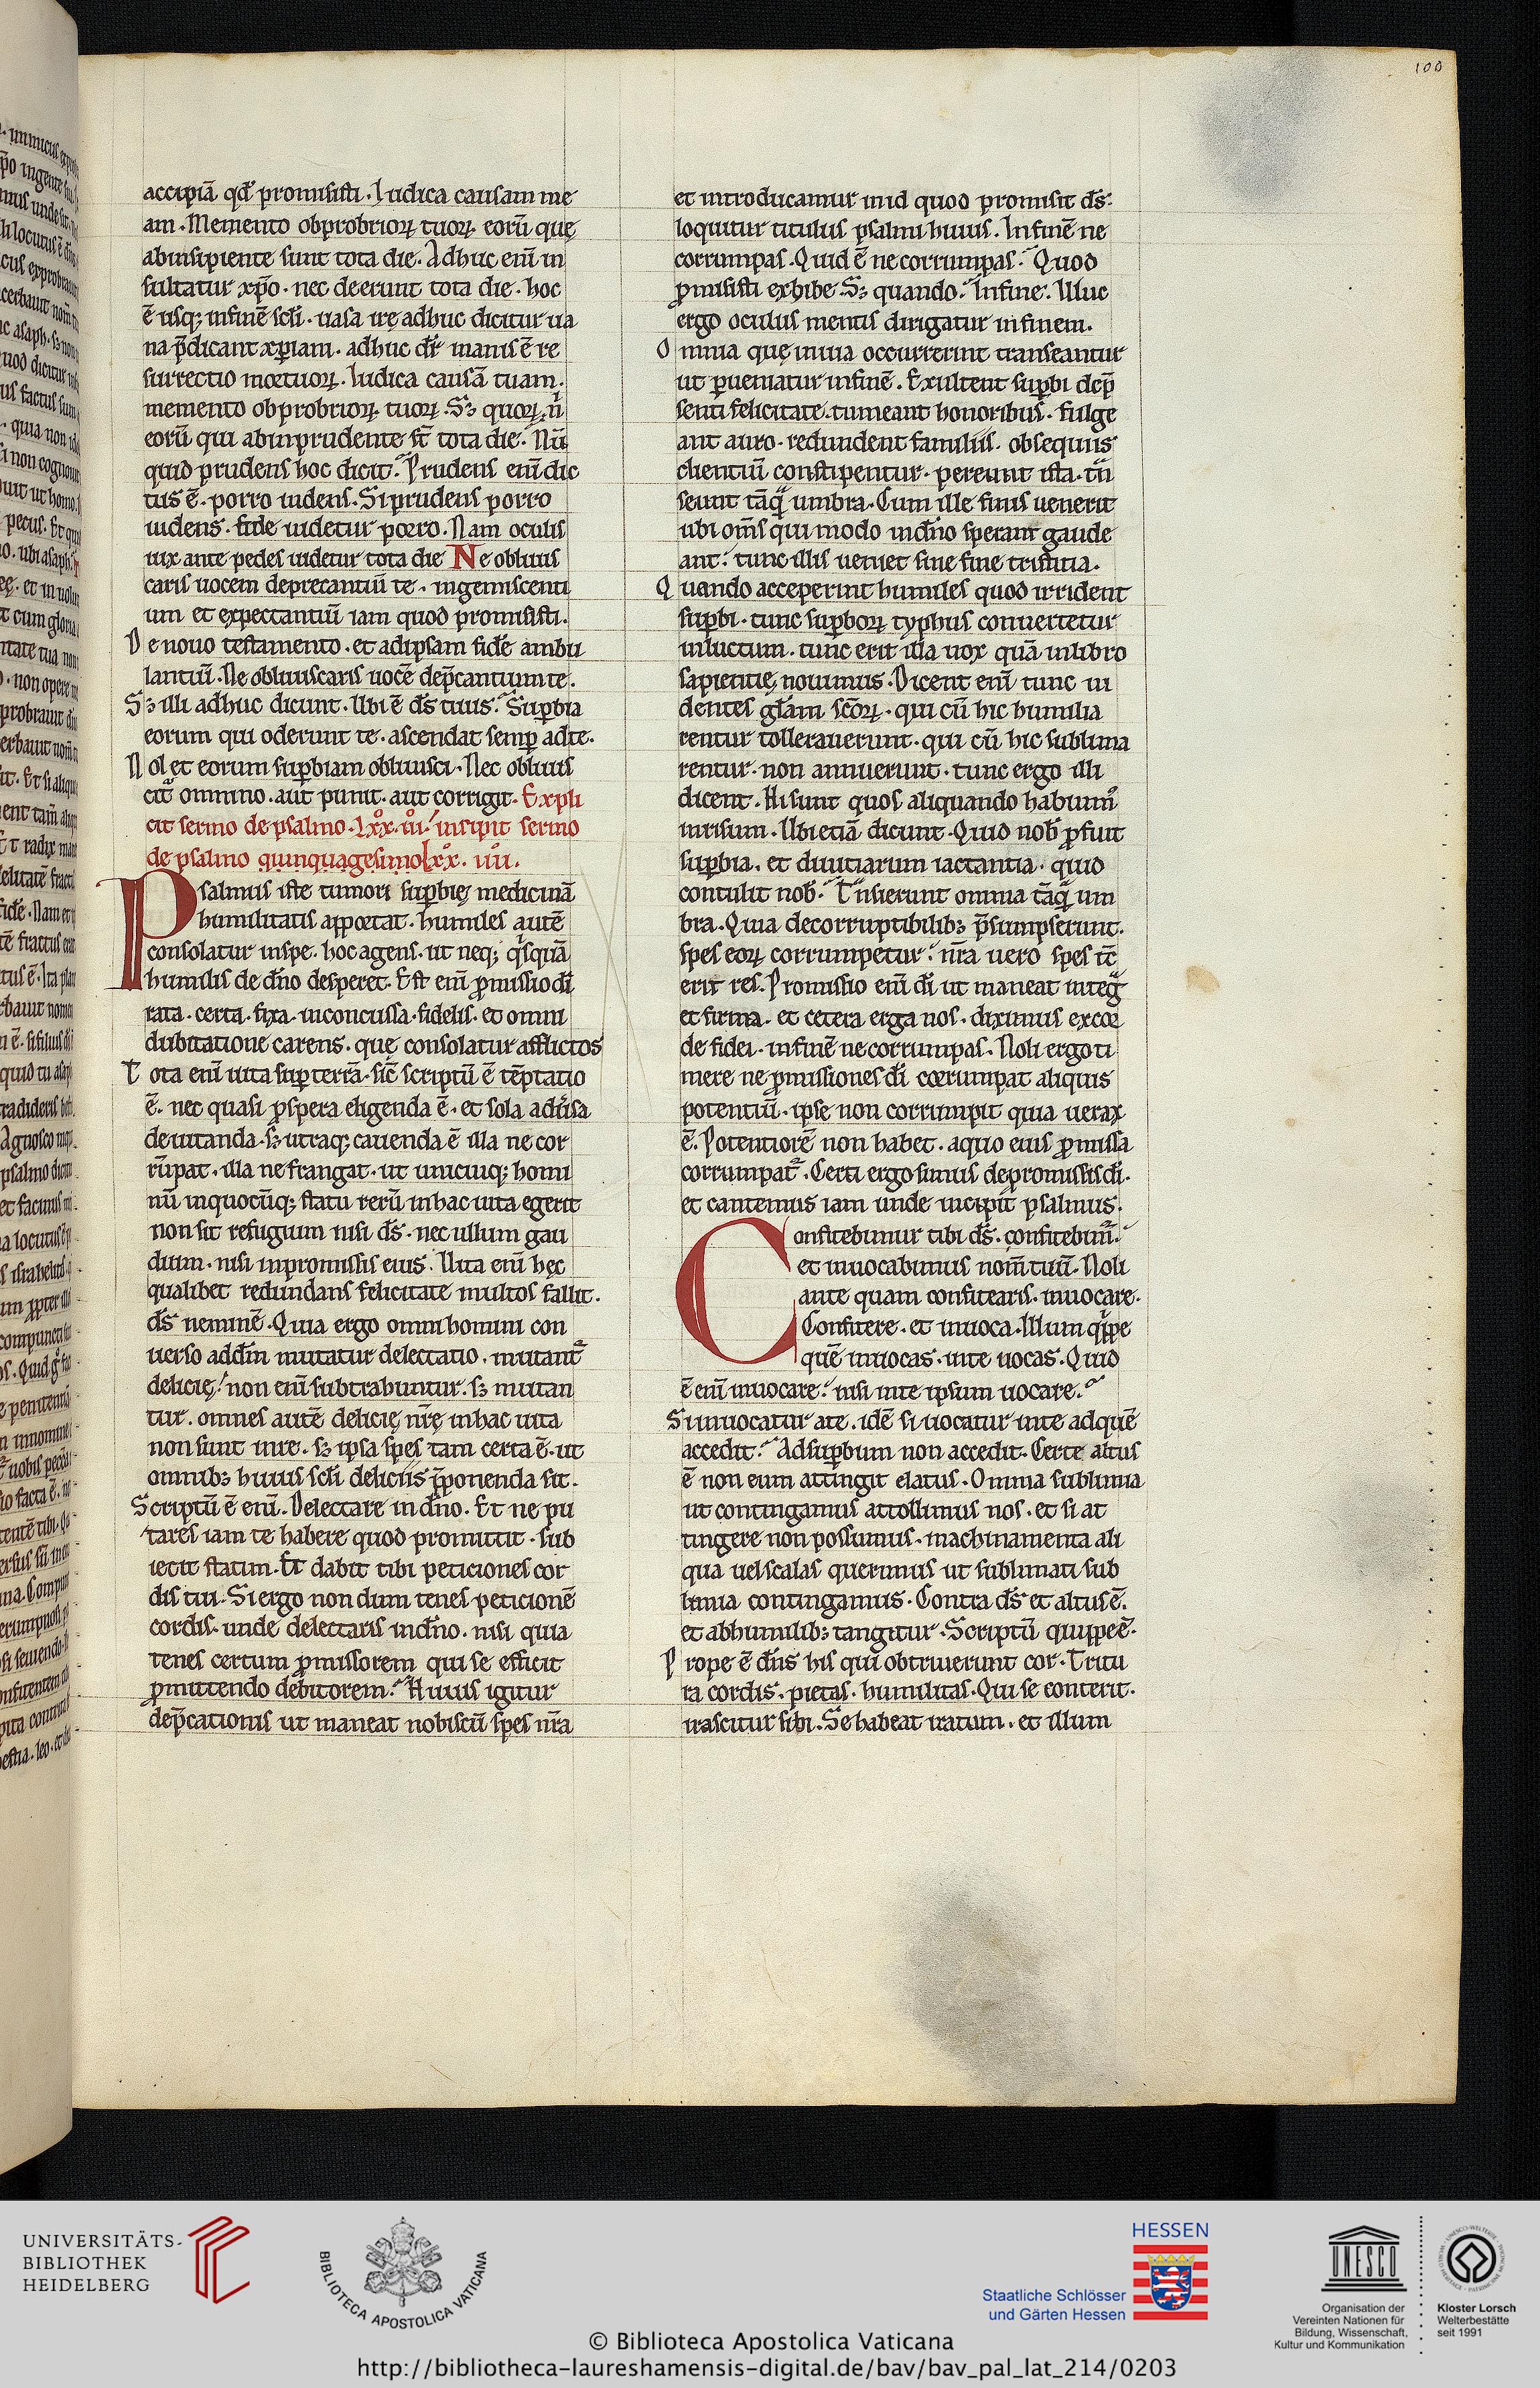 100
accipiā qd̄ promisisti. Iudica causam me
am. Memento obprobrioꝝ tuoꝝ. eorū quę
abinsipiente sunt tota die. Adhuc enī in
sultatur xp̄o. nec deerunt tota die. hoc
ē usq; infinē scl̄i. uasa irę adhuc dicitur ua
na p̄dicant xp̄iam. adhuc dr̄ inanis ē re
surrectio mortuoꝝ. Iudica causā tuam.
memento obprobrioꝝ tuoꝝ. Sꝫ quoꝝ. n̄
eorū qui abinprudente st̄ tota die. Nū
quid prudens hoc dicit? Prudens enī dic
tus ē. porro uidens. Si prudens porro
uidens. fide uidetur porro. Nam oculis
uix ante pedes uidetur tota die Ne obliuis
caris uocem deprecantiū te. ingemiscenti
um et expectantiū iam quod promisisti.
De nouo testamento. et adipsam fidē ambu
lantiū. Ne obliuiscaris uocē dep̄cantium te.
Sꝫ illi adhuc dicunt. Ubi ē ds̄ tuus? Supbia
eorum qui oderunt te. ascendat semp adte.
Noli et eorum supbiam obliuisci. Nec obliuis
cit̄ omnino. aut punit. aut corrigit. Expli
cit sermo de psalmo. Lxx. iii. incipit sermo
de psalmo quinquagesimo Lxx. iiii.
Psalmus iste tumori supbię medicinā
humilitatis apportat. humiles autē
consolatur inspe. hoc agens. ut neq; qisquā
humilis de dn̄o desperet. Est enī pmissio dī
rata. certa. fixa. inconcussa. fidelis. et omni
dubitatione carens. quę consolatur afflictos
Tota enī uita sup terrā. sic̄ scriptū ē tēptatio
ē. nec quasi pspera eligenda ē. et sola aduīsa
deuitanda. sꝫ utraq; cauenda ē illa ne cor
rūpat. illa ne frangat. ut unicuiq; homi
nū inquocūq; statu rerū inhac uita egerit
non sit refugium nisi ds̄. nec ullum gau
dium. nisi inpromissis eius. Uita enī hęc
qualibet redundans felicitate multos fallit.
ds̄ neminē. Quia ergo omni homini con
uerso addm̄ mutatur delectatio. mutant᷑
delicię. non enī subtrahuntur. sꝫ mutan
tur. omnes autē delicię nrę inhac uita
non sunt inre. sꝫ ipsa spes tam certa ē. ut
omnibꝫ huius scl̄i deliciis p̄ponenda sit.
Scriptū ē enī. Delectare in dn̄o. Et ne pu
tares iam te habere quod promittit. sub
iecit statim. Et dabit tibi peticiones cor
dis tui. Si ergo non dum tenes peticionē
cordis. unde delectaris indn̄o. nisi quia
tenes certum pmissorem qui se efficit
pmittendo debitorem? Huius igitur
dep̄cationis ut maneat nobiscū spes nr̄a
et introducamur inid quod promisit ds̄.
loquitur titulus psalmi huius. Infinē ne
corrumpas. Quid ē ne corrumpas? Quod
pmisisti exhibe. Sꝫ quando? Infine. Illuc
ergo oculus mentis dirigatur infinem.
Omnia quę inuia occurrerint transeantur
ut pueniatur infinē. Exultent supbi de p̄
senti felicitate. tumeant honoribus. fulge
ant auro. redundent familiis. obsequiis
clientiū constipentur. pereunt ista. tn̄
seunt tāqā umbra. Cum ille finis uenerit
ubi om̄s qui modo indn̄o sperant gaude
ant. tunc illis ueniet sine fine tristitia.
Quando acceperint humiles quod irrident
supbi. tunc supboꝝ typhus conuertetur
inluctum. tunc erit illa uox quā inlibro
sapientię nouimus. Dicent enī tunc ui
dentes gl̄am sc̄oꝝ. qui cū hic humilia
rentur tollerauerunt. qui cū hic sublima
rentur. non annuerunt. tunc ergo illi
dicent. Hi sunt quos aliquando habuim᷒
inrisum. Ubi etiā dicunt. Quid nob̄ pfuit
supbia. et diuitiarum iactantia. quid
contulit nob̄? Tnsierunt omnia tāqā um
bra. Quia decorruptibilibꝫ p̄sumpserunt.
spes eoꝝ corrumpetur. nr̄a uero spes tc̄
erit res. Promissio enī dī ut maneat integā
et firma. et cetera erga nos. diximus excor
de fidei. infinē ne corrumpas. Noli ergo ti
mere ne pmissiones dī corrumpat aliquis
potentiū. ipse non corrumpit quia uerax
ē. Potentiorē non habet. aquo eius pmissa
corrumpat᷑. Certi ergo simus depromissis dī.
et cantemus iam unde incipit psalmus.
Confitebimur tibi ds̄. confitebim᷑.
et inuocabimus nom̄ tuū. Noli
ante quam confitearis. inuocare.
Confitere. et inuoca. Illum qippe
quē inuocas. inte uocas. Quid
ē enī inuocare? nisi inte ipsum uocare?
Si inuocatur ate. idē si uocatur inte adquē
accedit? Adsupbum non accedit. Certe altus
ē non eum attingit elatus. Omnia sublimia
ut contingamus attollimus nos. et si at
tingere non possumus. machinamenta ali
qua uel scalas querimus ut sublimati sub
limia contingamus. Contra ds̄ et altus ē.
et abhumilibꝫ tangitur. Scriptū quippe ē.
Prope ē dn̄s his qui obtriuerunt cor. Tritu
ra cordis. pietas. humilitas. Qui se conterit.
irascitur sibi. Se habeat iratum. et illum
UNIVERSITÄTS-
BIBLIOTHEK
HEIDELBERG
BIBLIOTECA APOSTOLICA VATICANA
HESSEN
Staatliche Schlösser
und Gärten Hessen
UNESCO
Organisation der
Vereinten Nationen für
Bildung, Wissenschaft,
Kultur und Kommunikation
Kloster Lorsch
Welterbestätte
seit 1991
© Biblioteca Apostolica Vaticana
http://bibliotheca-laureshamensis-digital.de/bav/bav_pal_lat_214/0203